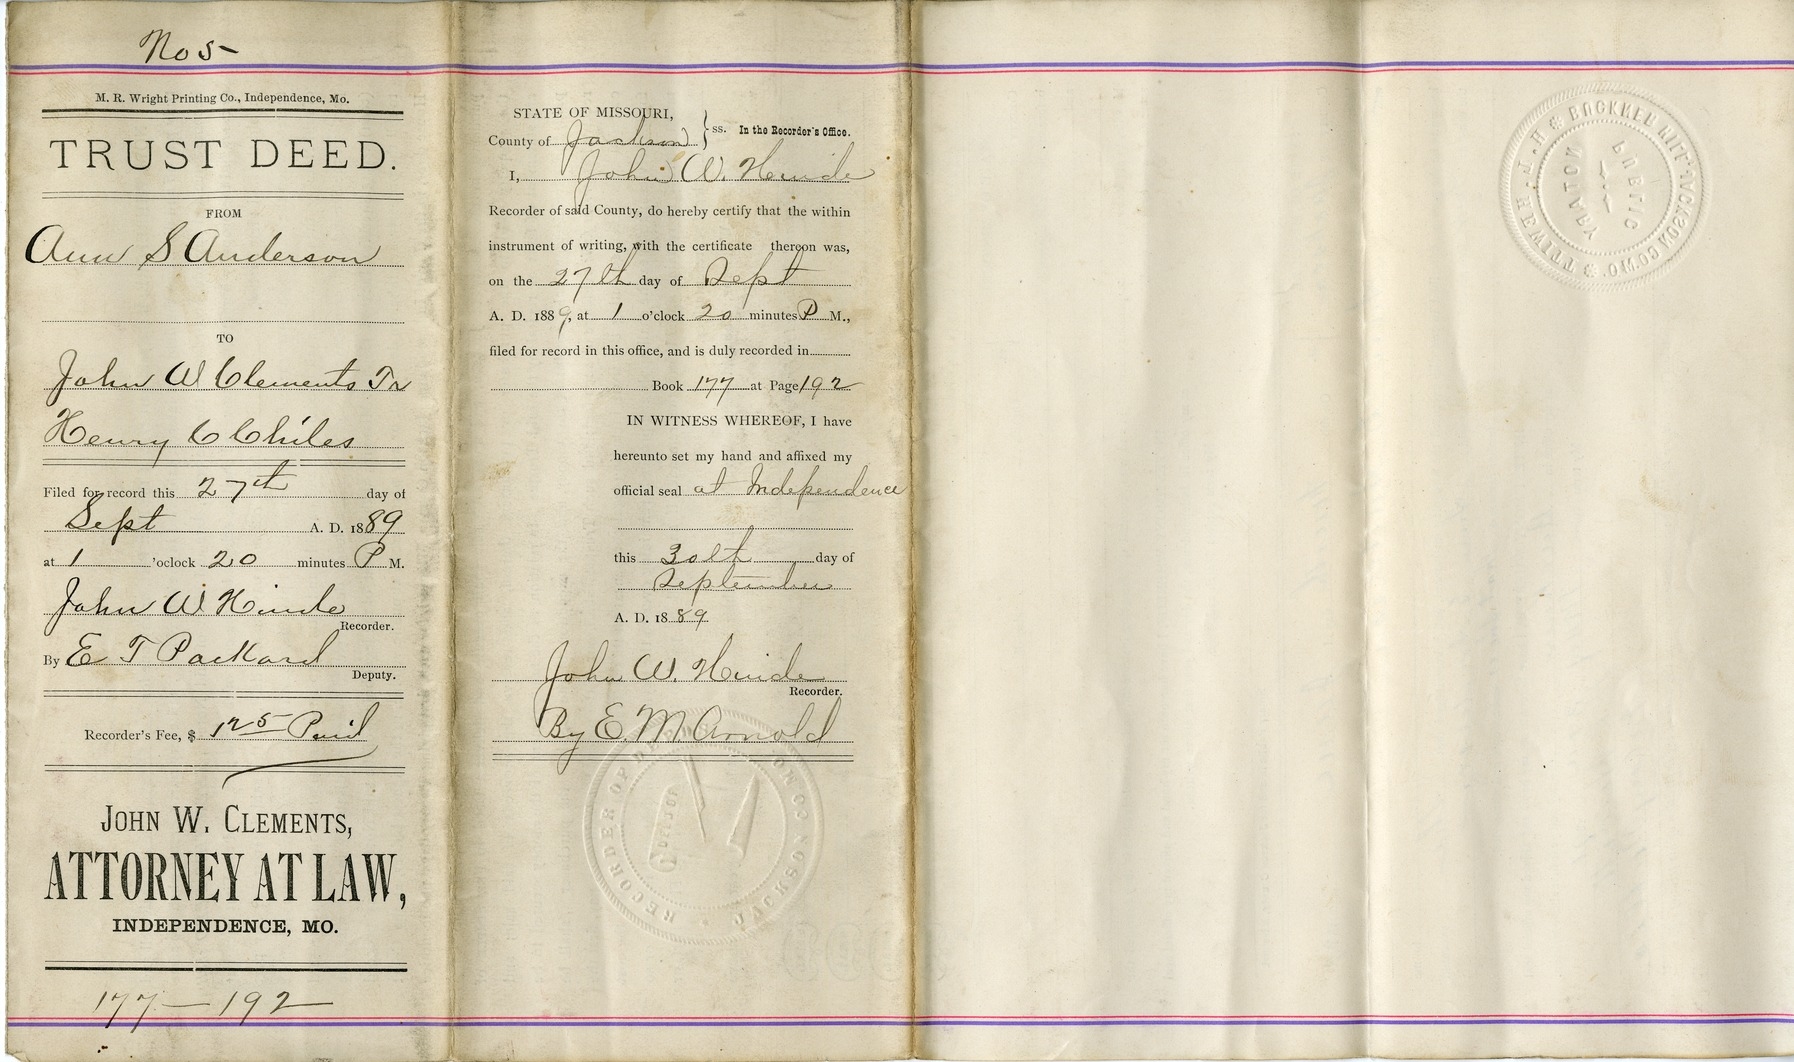 No 5
M. R. Wright Printing Co., Independence, Mo.
TRUST DEED.
FROM
Ann S Anderson
TO
John W Clements Tr
Henry C Chiles
Filed for record this 27th day of
Sept A. D. 1889
at 1 'oclock 20 minutes P M.
John W Hinde
Recorder.
By E T Packard
Deputy.
Recorder's Fee, $ 1 25 Paid
JOHN W. CLEMENTS,
ATTORNEY AT LAW,
INDEPENDENCE, MO.
177—192
STATE OF MISSOURI,
County of Jackson } ss. In the Recorder's Office.
I, John W. Hinde
Recorder of said County, do hereby certify that the within
instrument of writing, with the certificate thereon was,
on the 27th day of Sept
A. D. 1889, at 1 o'clock 20 minutes P M.,
filed for record in this office, and is duly recorded in
Book 177 at Page 192
IN WITNESS WHEREOF, I have
hereunto set my hand and affixed my
official seal at Independence
this 30th day of
September
A. D. 1889
John W. Hinde
Recorder.
By E. M Arnold
RECORDER OF
JACKSON CO
NOTARY
PUBLIC